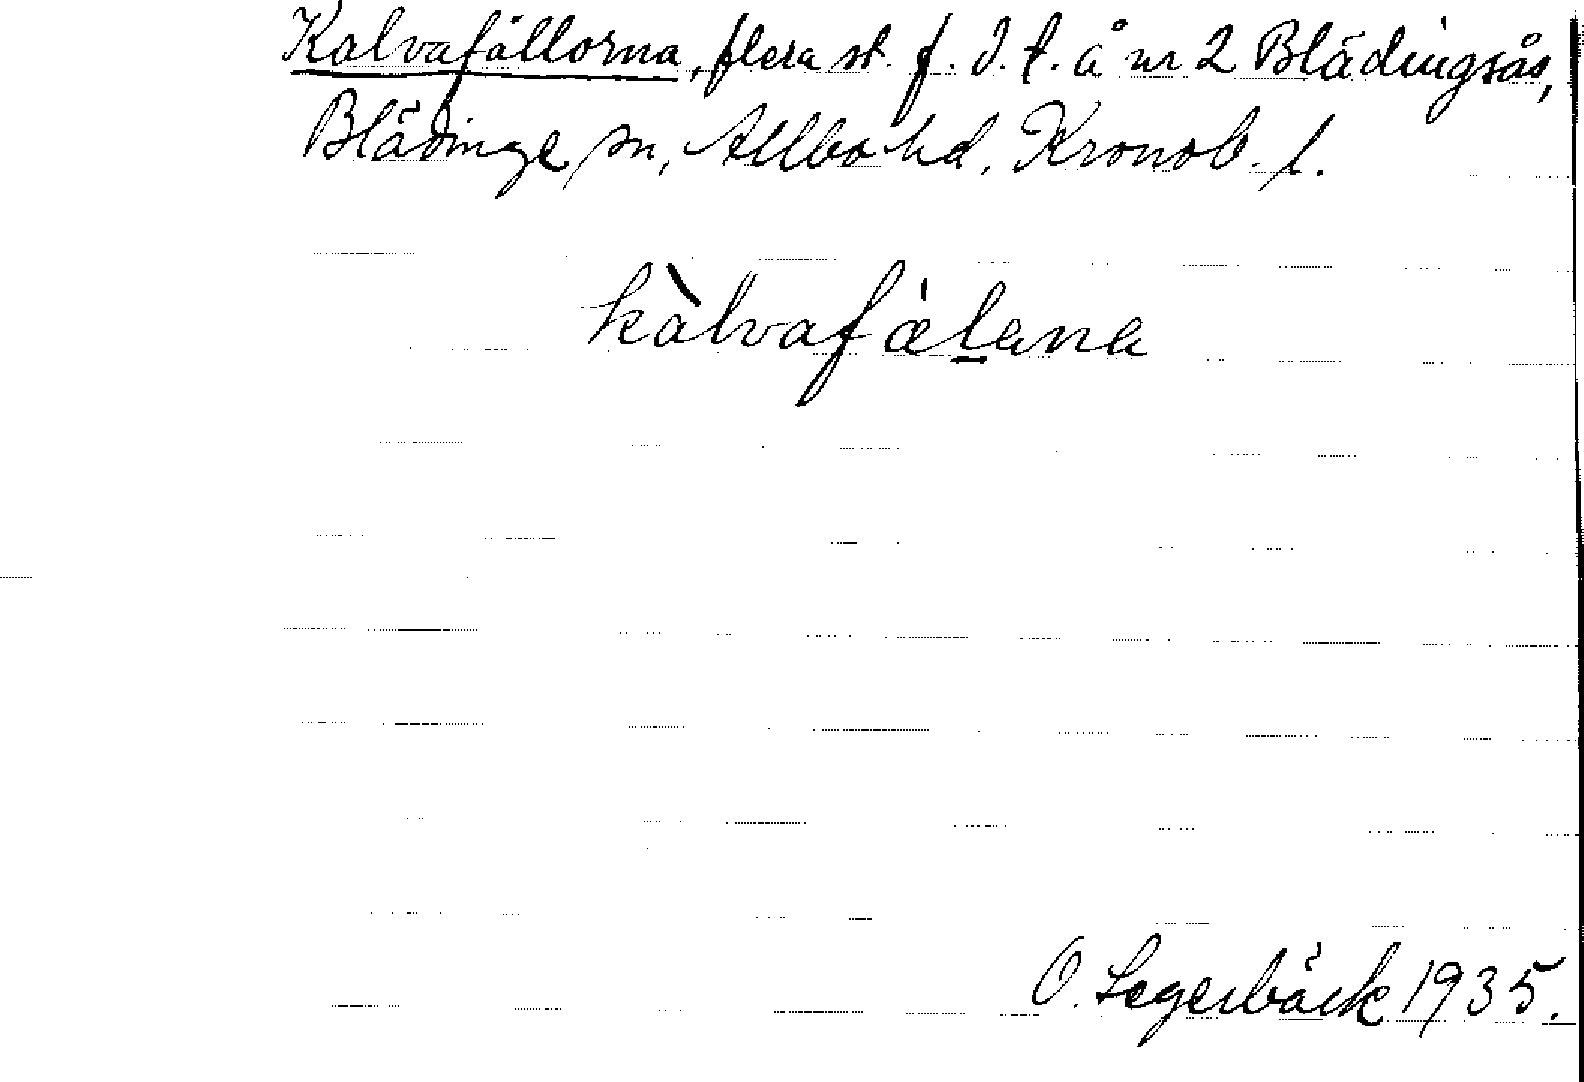 Kalvafällorna, flera st. f. d. t. å nr 2 Blädingsås,
Blädinge sn, Allbo hd, Kronob. l.
kàlvafælana
O. Segerbäck 1935.